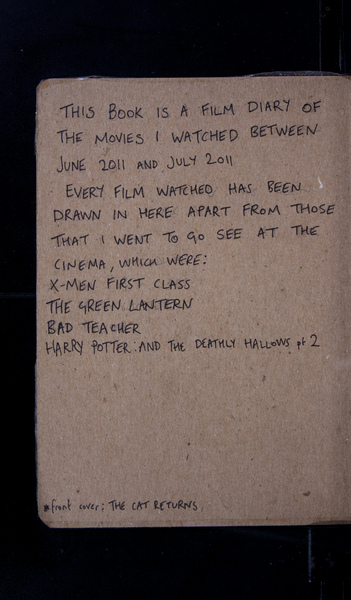 THIS BOOK IS A FILM DIARY OF
THE MOVIES I WATCHED BETWEEN
JUNE 2011 AND JULY 2011
EVERY FILM WATCHED HAS BEEN
DRAWN IN HERE APART FROM THOSE
THAT I WENT TO GO SEE AT THE
CINEMA, WHICH WERE:
X-MEN FIRST CLASS
THE GREEN LANTERN
BAD TEACHER
HARRY POTTER: AND THE DEATHLY HALLOWS pt 2
*front cover: THE CAT RETURNS